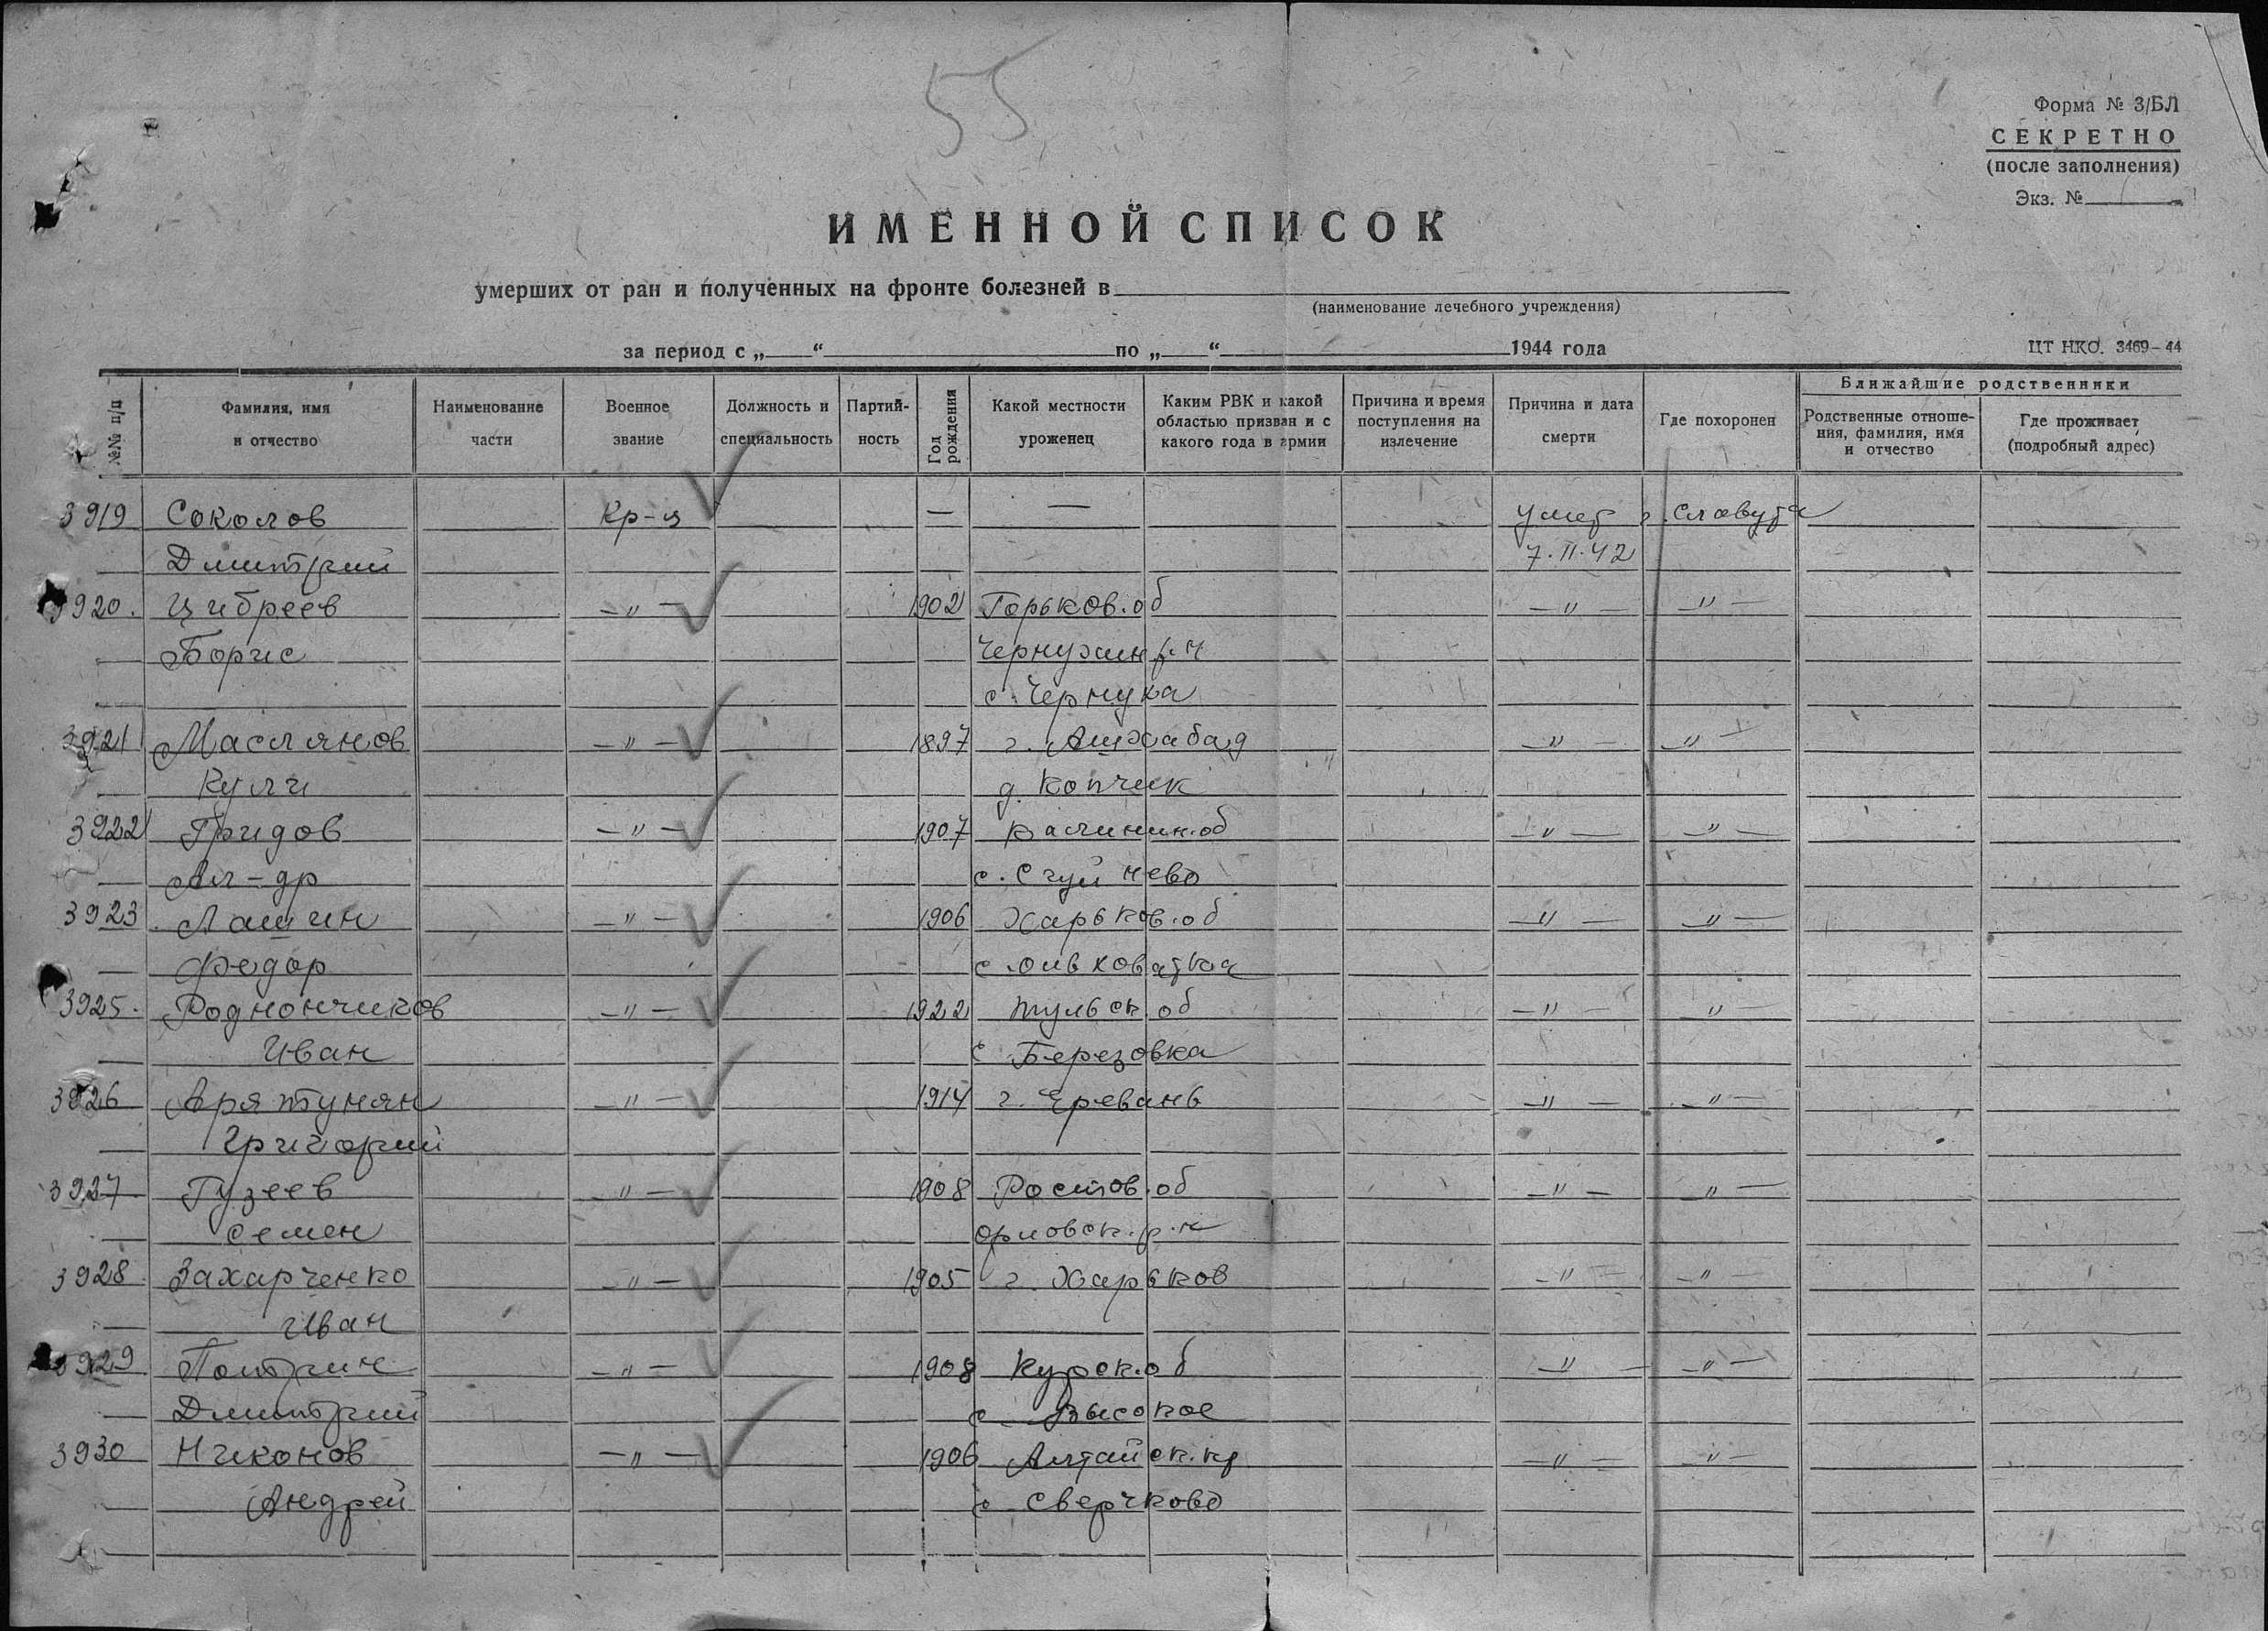 55
Форма № 3/БЛ
СЕКРЕТНО
(после заполнения)
Экз. №
ИМЕННОЙ СПИСОК
умерших от ран и полученных на фронте болезней в
(наименование лечебного учреждения)
за период с „ “ по „ “ 1944 года
ЦТ НКО. 3469-44
№№ п/п
Фамилия, имя и отчество
Наименование части
Военное звание
Должность и специальность
Партий-ность
Год рождения
Какой местности уроженец
Каким РВК и какой областью призван и с какого года в армии
Причина и время поступления на излечение
Причина и дата смерти
Где похоронен
Ближайшие родственники
Родственные отноше-ния, фамилия, имя и отчество
Где проживает (подробный адрес)
3919 Соколов Кр-ц — — умер г. Славута
Дмитрий 7.II.42
3920. Цибреев —"— 1902 Горьков.об —"— —"—
Борис Чернухин р-н
с. Чернуха
3921 Маслянов —"— 1897 г. Ашхабад —"— —"—
Кули д. Копчик
3922 Гридов —"— 1907 Калинин.об —"— —"—
Ал-др с.
3923 Лашин —"— 1906 Харьков.об —"— —"—
Федор с.
3925. Родиончиков —"— 1922 Тульск об —"— —"—
Иван с Березовка
3926 Арятунян —"— 1914 г. Еревань —"— —"—
Григорий
3927 Гузеев —"— 1908 Ростов.об —"— —"—
Семен Орловск.р.н
3928 Захарченко —"— 1905 г. Харьков —"— —"—
Иван
3929 —"— 1908 Курск.об —"— —"—
Дмитрий с Высокое
3930 Никонов —"— 1906 Алтайск.кр —"— —"—
Андрей с Сверчково